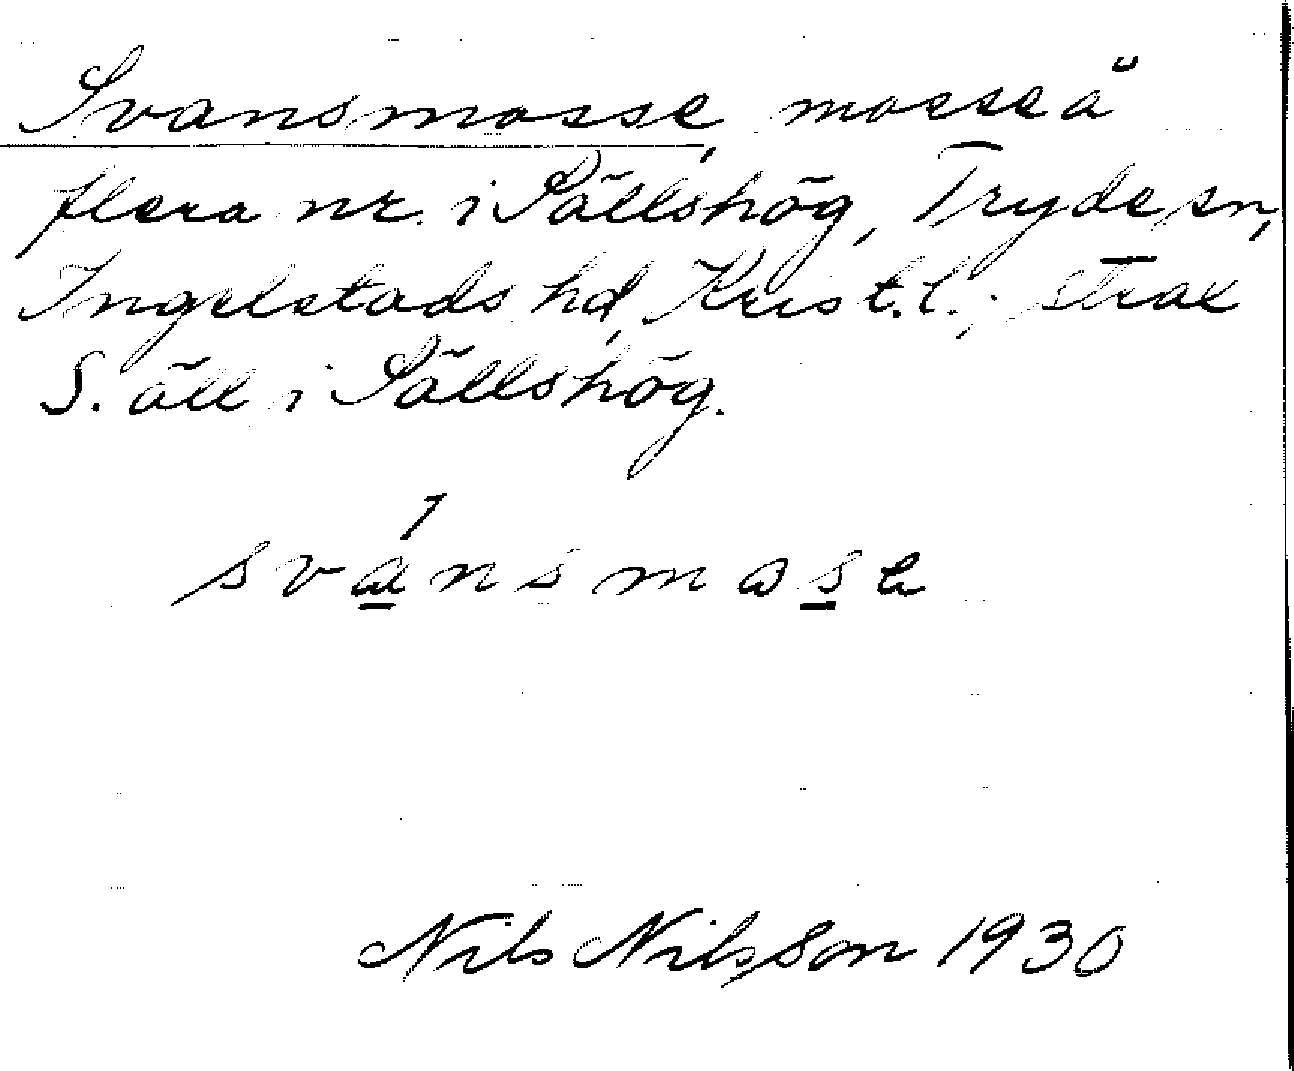 Svansmosse, mosse å
flera nr. i Pällshög, Tryde sn,
Ingelstads hd, Krist. l.; strax
S. äll i Pällshög.
svánsmose
Nils Nilsson 1930